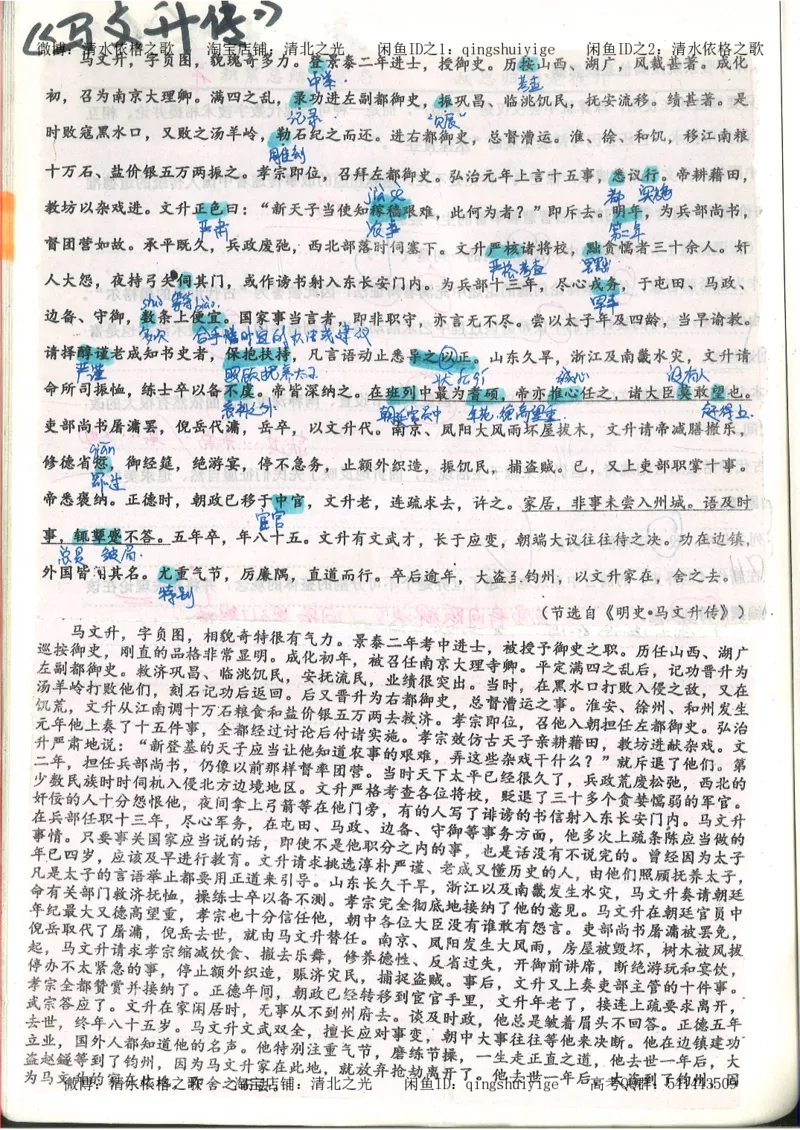 《马文升传》
微博：清水依格之歌 淘宝店铺：清北之光 闲鱼ID之1：qingshuiyige 闲鱼ID之2：清水依格之歌
马文升，字负图，貌瑰奇多力。登景泰二年进士，授御史。历按山西、湖广，风裁甚著。成化
中举 考查
初，召为南京大理卿。满四之乱，录功进左副都御史，振巩昌、临洮饥民，抚安流移。绩甚著。是
记录 “赈”
时败寇黑水口，又败之汤羊岭，勒石纪之而还。进右都御史，总督漕运。淮、徐、和饥，移江南粮
雕刻
十万石、盐价银五万两振之。孝宗即位，召拜左都御史。弘治元年上言十五事，悉议行。帝耕藉田，
jià sè 都 实施
教坊以杂戏进。文升正色曰：“新天子当使知稼穑艰难，此何为者？”即斥去。明年，为兵部尚书，
严肃 农事 第二年
督团营如故。承平既久，兵政废弛，西北部落时伺塞下。文升严核诸将校，黜贪懦者三十余人。奸
严格考查
人大怨，夜持弓矢伺其门，或作谤书射入东长安门内。为兵部十三年，尽心戎务，于屯田、马政、
军事
边备、守御，数条上便宜。国家事当言者，即非职守，亦言无不尽。尝以太子年及四龄，当早谕教。
多次
请择醇谨老成知书史者，保抱扶持，凡言语动止悉导之以正。山东久旱，浙江及南畿水灾，文升请
严谨 状后 诚心 没有人
命所司振恤，练士卒以备不虞。帝皆深纳之。在班列中最为耆硕，帝亦推心任之，诸大臣莫敢望也。
意料之外 朝廷官员中 年老，德高望重
吏部尚书屠滽罢，倪岳代滽，岳卒，以文升代。南京、凤阳大风雨坏屋拔木，文升请帝减膳撤乐，
qiān
修德省愆，御经筵，绝游宴，停不急务，止额外织造，振饥民，捕盗贼。已，又上吏部职掌十事。
罪过
帝悉褒纳。正德时，朝政已移于中官，文升老，连疏求去，许之。家居，非事未尝入州城。语及时
宦官
事，辄颦蹙不答。五年卒，年八十五。文升有文武才，长于应变，朝端大议往往待之决。功在边镇，
总是 皱眉
外国皆闻其名。尤重气节，厉廉隅，直道而行。卒后逾年，大盗至钧州，以文升家在，舍之去。
特别
（节选自《明史•马文升传》）
马文升，字负图，相貌奇特很有气力。景泰二年考中进士，被授予御史之职。历任山西、湖广
巡按御史，刚直的品格非常显明。成化初年，被召任南京大理寺卿。平定满四之乱后，记功晋升为
左副都御史。救济巩昌、临洮饥民，安抚流民，业绩很突出。当时，在黑水口打败入侵之敌，又在
汤羊岭打败他们，刻石记功后返回。后又晋升为右都御史，总督漕运之事。淮安、徐州、和州发生
饥荒，文升从江南调十万石粮食和盐价银五万两去救济。孝宗即位，召他入朝担任左都御史。弘治
元年他上奏了十五件事，全都经过讨论后付诸实施。孝宗效仿古天子亲耕藉田，教坊进献杂戏。文
升严肃地说：“新登基的天子应当让他知道农事的艰难，弄这些杂戏干什么？”就斥退了他们。第
二年，担任兵部尚书，仍像以前那样督率团营。当时天下太平已经很久了，兵政荒废松弛，西北的
少数民族时时伺机入侵北方边境地区。文升严格考查各位将校，贬退了三十多个贪婪懦弱的军官。
奸佞的人十分怨恨他，夜间拿上弓箭等在他门旁，有的人写了诽谤的书信射入东长安门内。马文升
在兵部任职十三年，尽心军务，在屯田、马政、边备、守御等事务方面，他多次上疏条陈应当做的
事情。只要事关国家应当说的话，即使不是他职分之内的事，也是话没有不说完的。曾经因为太子
年已四岁，应该及早进行教育。文升请求挑选淳朴严谨、老成又懂历史的人，由他们照顾抚养太子，
凡是太子的言语举止都要用正道来引导。山东长久干旱，浙江以及南畿发生水灾，马文升奏请朝廷
命有关部门救济抚恤，操练士卒以备不测。孝宗完全彻底地接纳了他的意见。马文升在朝廷官员中
年纪最大又德高望重，孝宗也十分信任他，朝中各位大臣没有谁敢有怨言。吏部尚书屠滽被罢免，
倪岳取代了屠滽，倪岳去世，就由马文升替任。南京、凤阳发生大风雨，房屋被毁坏，树木被风拔
起，马文升请求孝宗缩减饮食、撤去乐舞，修养德性、反省过失，开御前讲席，断绝游玩和宴饮，
停办不太紧急的事，停止额外织造，赈济灾民，捕捉盗贼。事后，文升又上奏吏部主管的十件事。
孝宗全都赞赏并接纳了。正德年间，朝政已经转移到宦官手里，文升年老了，接连上疏要求离开，
武宗答应了。文升在家闲居时，无事从不到州府去。谈及时政，他总是皱着眉头不回答。正德五年
去世，终年八十五岁。马文升文武双全，擅长应对事变，朝中大事往往等他来决断。他在边镇建功
立业，国外人都知道他的名声。他特别注重气节，磨练节操，一生走正直之道，他去世一年后，大
盗赵鐩等到了钧州，因为马文升家在此地，就放弃抢劫离开了。他去世一年后，大盗到了钧州，因
为马文升的家在此地，
微博：清水依格之歌 淘宝店铺：清北之光 闲鱼ID：qingshuiyige 高考QQ群：611443509